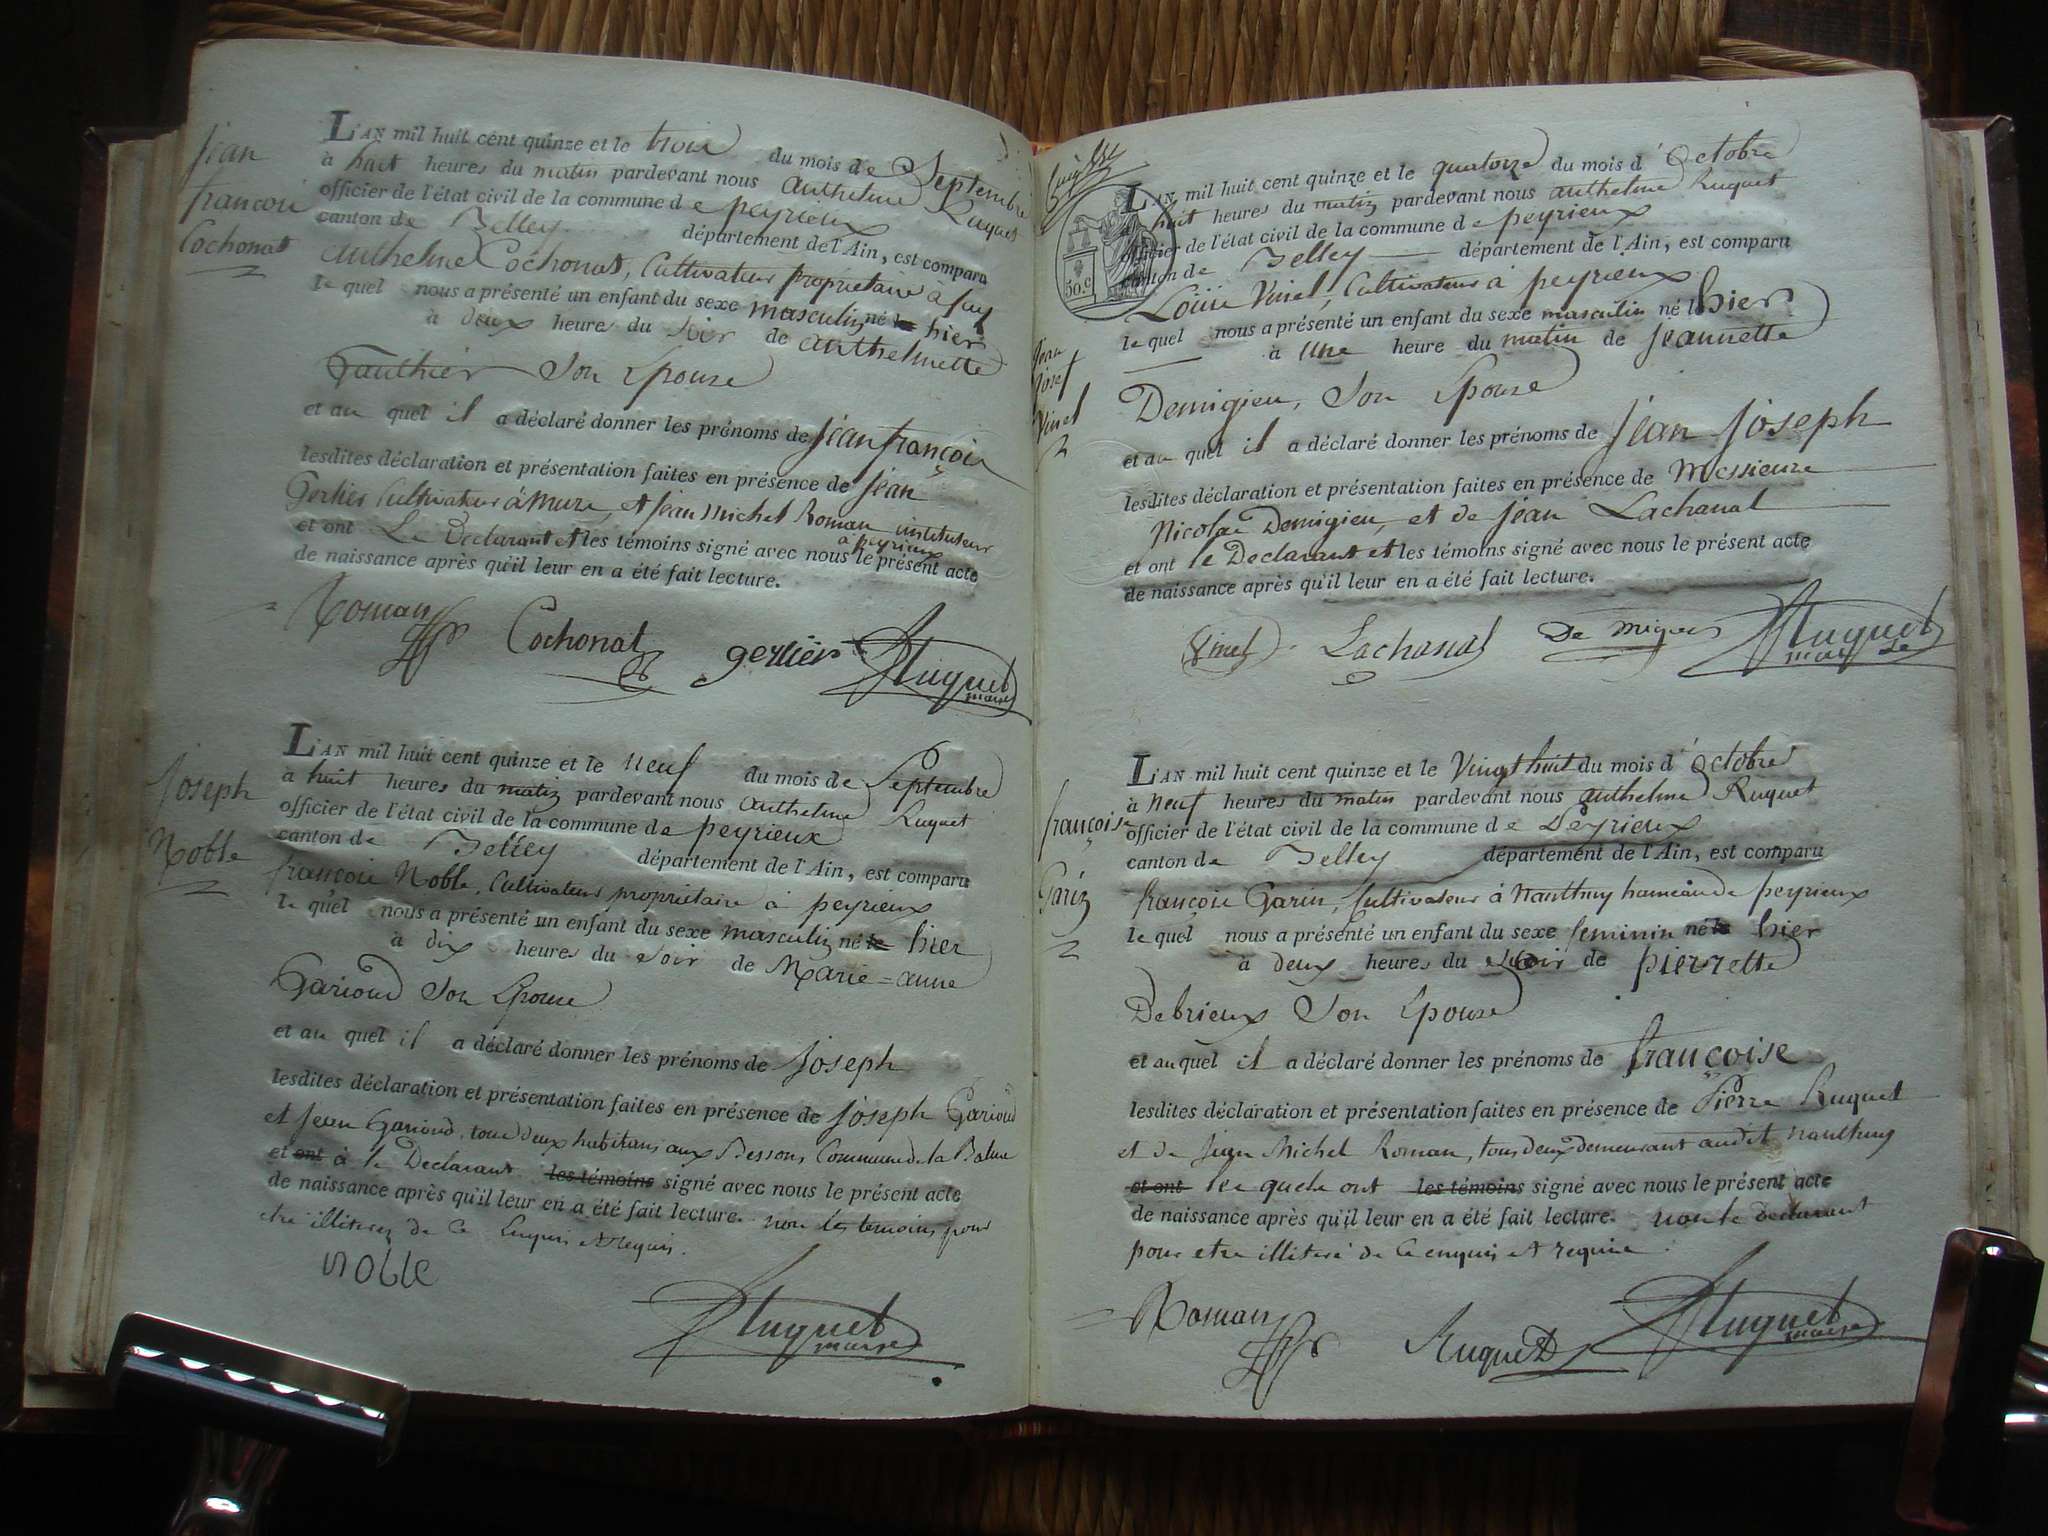 Jean
françois
Cochonat
LAN mil huit cent quinze et le trois du mois de Septembre
à huit heures du matin pardevant nous anthelme Ruquet
officier de l'état civil de la commune de peyrieux
canton de Belley département de l'Ain, est comparu
anthelme Cochonat, Cultivateur propriétaire à
le quel nous a présenté un enfant du sexe masculin né le hier
à deux heures du soir de anthelmette
Gauthier Son Epouse
et au quel il a déclaré donner les prénoms de Jean françois
lesdites déclaration et présentation faites en présence de Jean
Gerlier Cultivateur à Mure, et Jean Michel Roman instituteur
à peyrieux
et ont Le Declarant et les témoins signé avec nous le présent acte
de naissance après qu'il leur en a été fait lecture.
Roman Cochonat gerlier Ruquet
maire
Joseph
Noble
LAN mil huit cent quinze et le neuf du mois de Septembre
à huit heures du matin pardevant nous anthelme Ruquet
officier de l'état civil de la commune de peyrieux
canton de Belley département de l'Ain, est comparu
françois Noble, Cultivateur propriétaire à peyrieux
le quel nous a présenté un enfant du sexe masculin né le hier
à dix heures du soir de Marie=anne
Garioud Son Epouse
et au quel il a déclaré donner les prénoms de Joseph
lesdites déclaration et présentation faites en présence de Joseph Garioud
et Jean Garioud, tous deux habitans aux Bessons Commune de la Balme
et ont à le Declarant les témoins signé avec nous le présent acte
de naissance après qu'il leur en a été fait lecture. non les temoins pour
etre illiterés de ce Enquis et requis.
Noble
Ruquet
maire
50.c
Jean
Josef
Vinel
LAN mil huit cent quinze et le quatorze du mois d'Octobre
à huit heures du matin pardevant nous anthelme Ruquet
officier de l'état civil de la commune de peyrieux
canton de Belley département de l'Ain, est comparu
Louis Vinel, Cultivateur à peyrieux
le quel nous a présenté un enfant du sexe masculin né le hier
à une heure du matin de Jeannette
Demigieu, Son Epouse
et au quel il a déclaré donner les prénoms de Jean Joseph
lesdites déclaration et présentation faites en présence de Messieurs
Nicolas Demigieu, et de Jean Lachanal
et ont le Declarant et les témoins signé avec nous le présent acte
de naissance après qu'il leur en a été fait lecture.
Vinel Lachanal Ruquet
maire
françoise
Garin
LAN mil huit cent quinze et le Vingt huit du mois d'Octobre
à neuf heures du matin pardevant nous anthelme Ruquet
officier de l'état civil de la commune de Peyrieux
canton de Belley département de l'Ain, est comparu
françois Garin, Cultivateur à Nanthuy hameau de peyrieux
le quel nous a présenté un enfant du sexe feminin né le hier
à deux heures du soir de pierrette
Debrieux Son Epouse
et au quel il a déclaré donner les prénoms de françoise
lesdites déclaration et présentation faites en présence de Pierre Ruquet
et de Jean Michel Roman, tous deux demeurant audit Nanthuy
et ont les quels ont les témoins signé avec nous le présent acte
de naissance après qu'il leur en a été fait lecture. non le Declarant
pour etre illiteré de ce enquis et requis.
Roman Ruquet Ruquet
maire